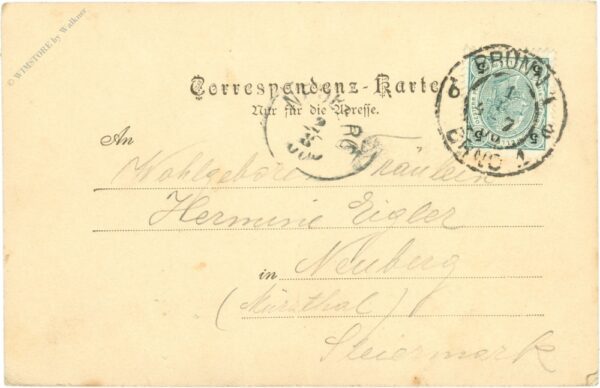 © WIMSTORE by Walkner
Correspondenz-Karte
Nur für die Adresse.
BRÜNN 1
BRNO 1
An
Wohlgeboren Fräulein
Hermine Eigler
in Neuberg
(Mürzthal)
Steiermark